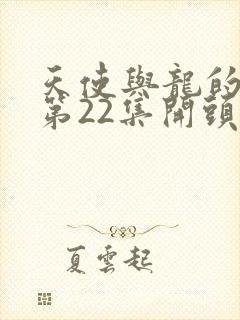 天使與龍的
第22集開頭
夏雲起